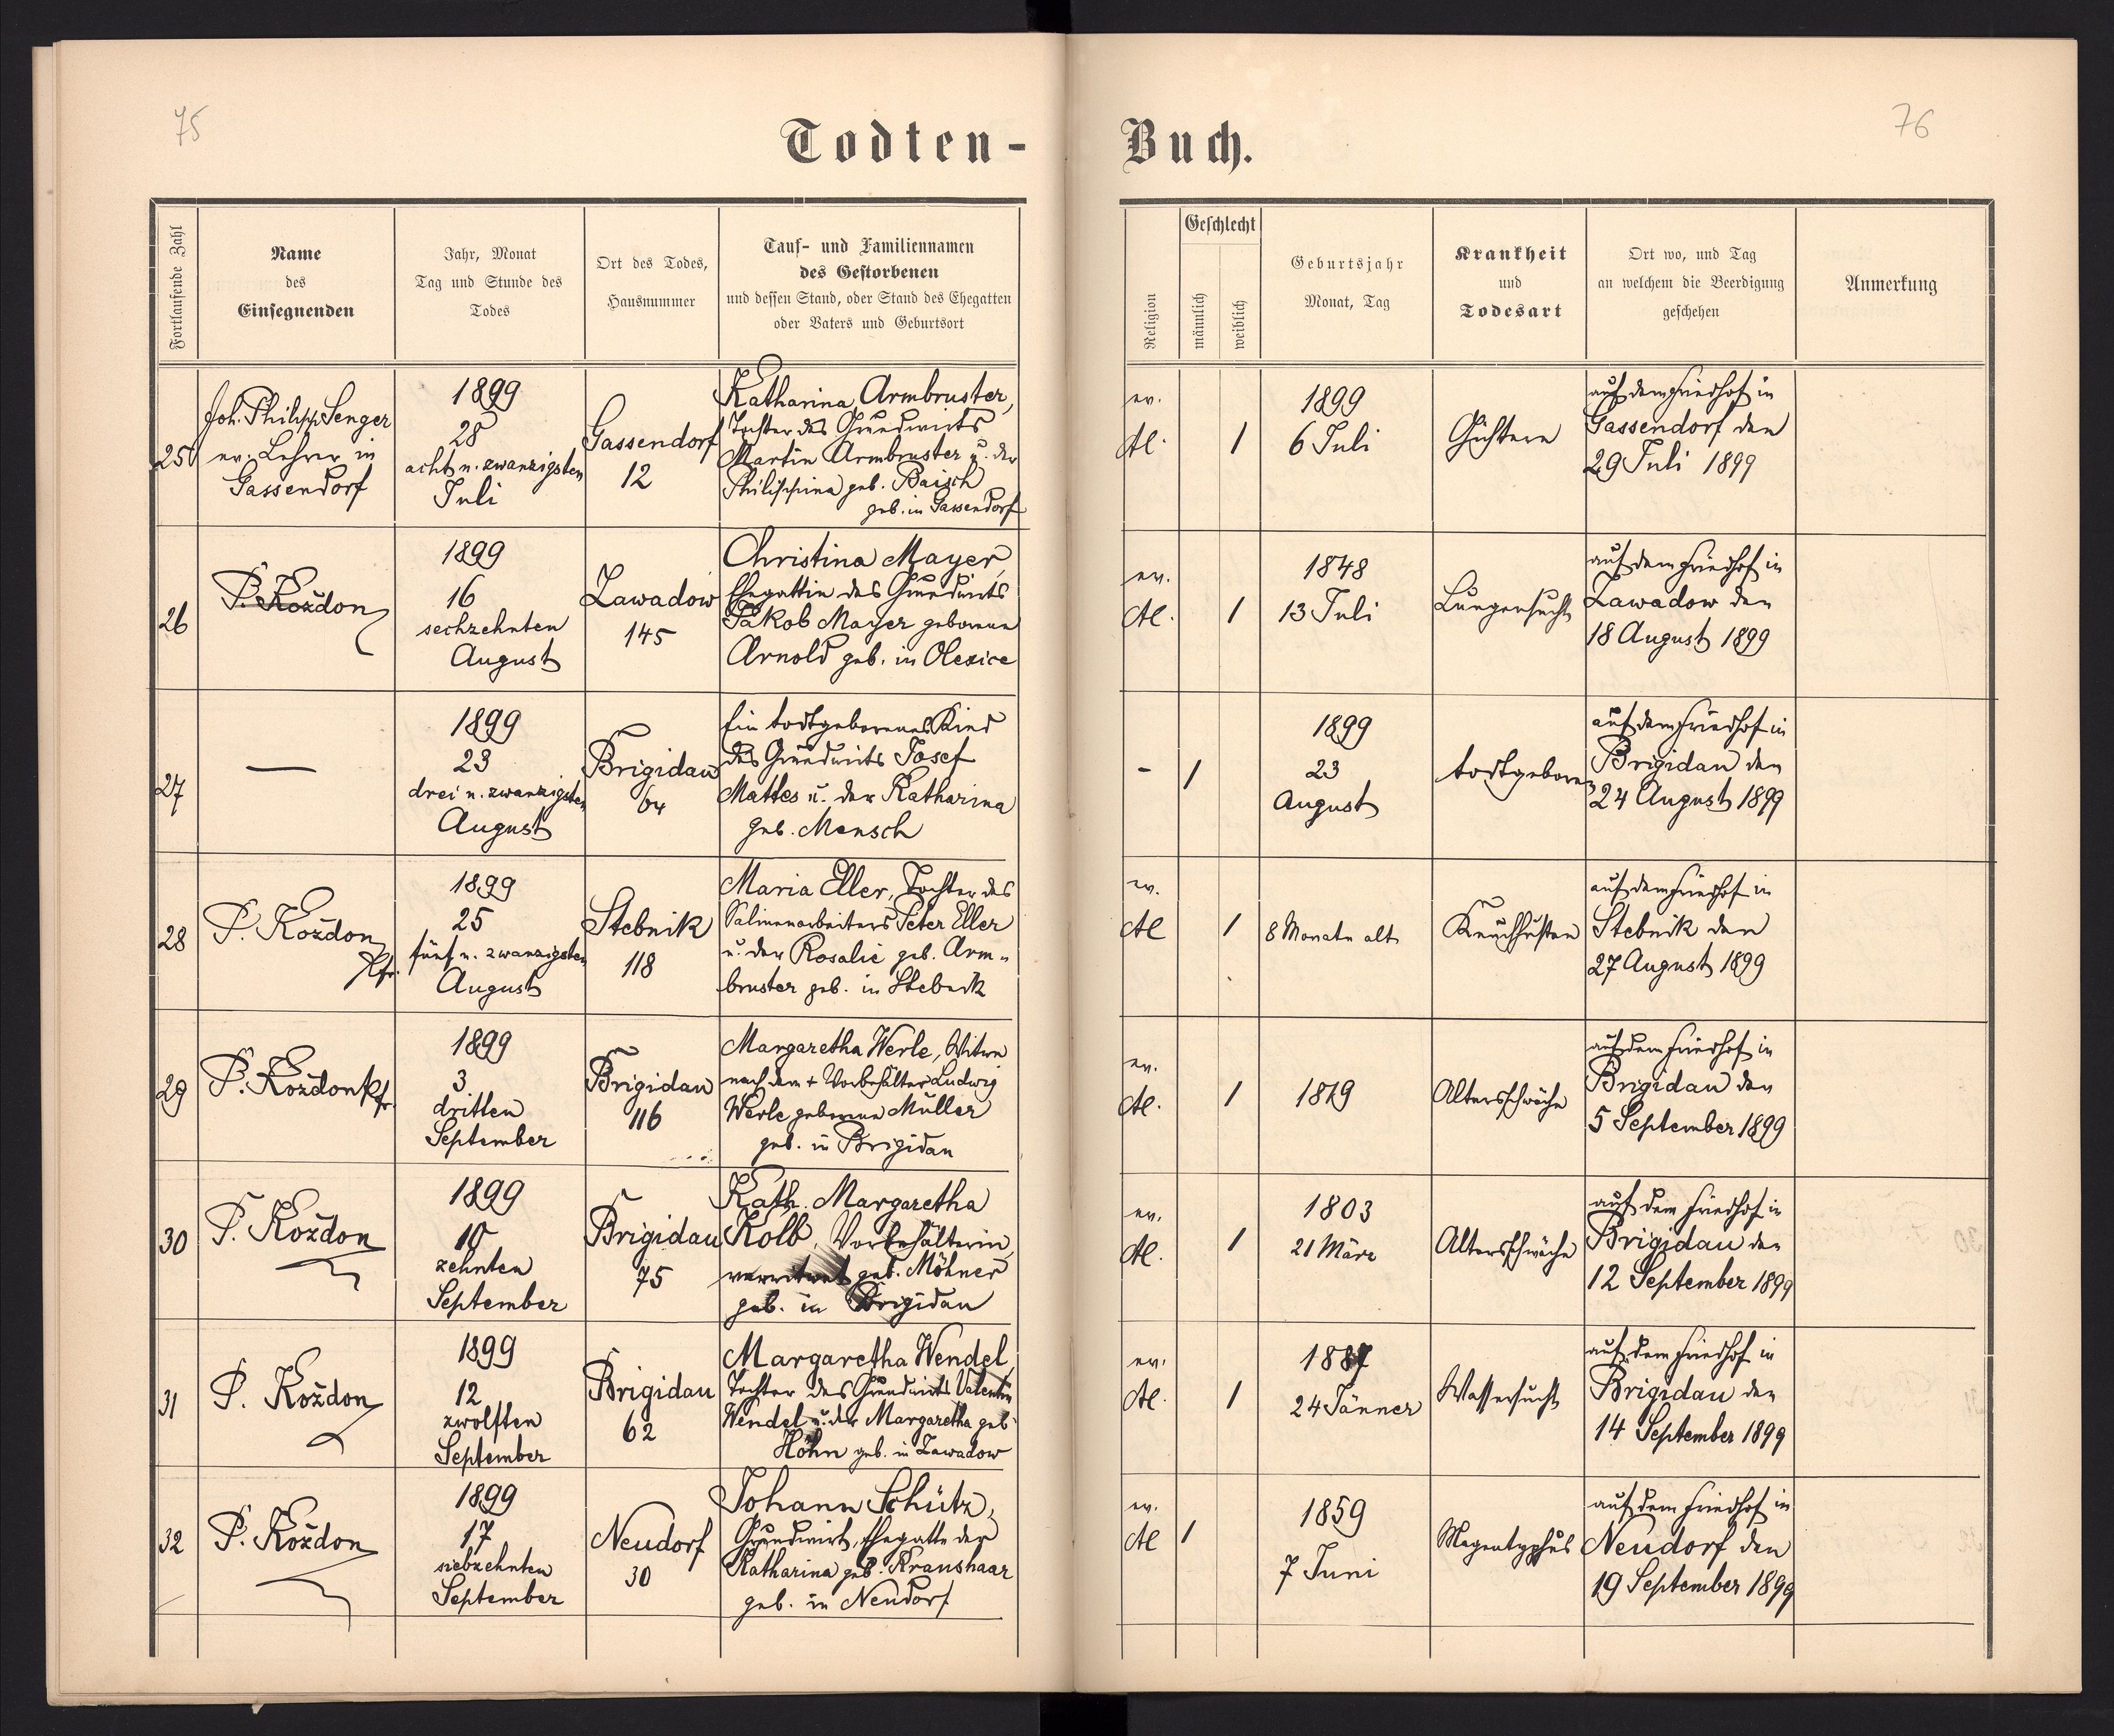 75
76
Todten-
Buch.
Fortlaufende Zahl
Name
des
Einsegnenden
Jahr, Monat
Tag und Stunde des
Todes
Ort des Todes,
Hausnummer
Tauf- und Familiennamen
des Gestorbenen
und dessen Stand, oder Stand des Ehegatten
oder Vaters und Geburtsort
Religion
Geschlecht
männlich
weiblich
Geburtsjahr
Monat, Tag
Krankheit
und
Todesart
Ort wo, und Tag
an welchem die Beerdigung
geschehen
Anmerkung
25
Joh. Philipp Senger
ev. Lehrer in
Gassendorf
1899
28
acht u. zwanzigsten
Juli
Gassendorf
12
Katharina Armbruster,
Tochter des Grundwirts
Martin Armbruster u. der
Philippina geb. Baisch
geb. in Gassendorf
ev.
A.C.
1
1899
6 Juli
Gichtern
auf dem Friedhof in
Gassendorf den
29 Juli 1899
26
P. Kożdon
1899
16
sechzehnten
August
Zawadow
145
Christina Mayer,
Ehegattin des Grundwirts
Jakob Mayer geborene
Arnold geb. in Olexice
ev.
A.C.
1
1848
13 Juli
Lungensucht
auf dem Friedhof in
Zawadow den
18 August 1899
27
—
1899
23
drei u. zwanzigsten
August
Brigidau
64
Ein todtgeborenes Kind
des Grundwirts Josef
Mattes u. der Katharina
geb. Mensch
-
1
1899
23
August
todtgeboren
auf dem Friedhof in
Brigidau den
24 August 1899
28
P. Kożdon
Pfr.
1899
25
fünf u. zwanzigsten
August
Stebnik
118
Maria Eller, Tochter des
Salinenarbeiters Peter Eller
u. der Rosalie geb. Arm-
bruster geb. in Stebnik
ev.
A.C.
1
8 Monate alt
Keuchhusten
auf dem Friedhof in
Stebnik den
27 August 1899
29
P. Kożdon Pfr.
1899
3
dritten
September
Brigidau
116
Margaretha Werle, Witwe
nach dem + Vorbehälter Ludwig
Werle geborene Müller
geb. in Brigidau
ev.
A.C.
1
1819
Altersschwäche
auf dem Friedhof in
Brigidau den
5 September 1899
30
P. Kożdon
1899
10
zehnten
September
Brigidau
75
Kath. Margaretha
Kolb, Vorbehälterin,
verwitwet geb. Möhner
geb. in Brigidau
ev.
A.C.
1
1803
21 März
Altersschwäche
auf dem Friedhof in
Brigidau den
12 September 1899
31
P. Kożdon
1899
12
zwölften
September
Brigidau
62
Margaretha Wendel,
Tochter des Grundwirts Valentin
Wendel u. der Margaretha geb.
Höhn geb. in Zawadow
ev.
A.C.
1
1887
24 Jänner
Wassersucht
auf dem Friedhof in
Brigidau den
14 September 1899
32
P. Kożdon
1899
17
siebzehnten
September
Neudorf
30
Johann Schütz,
Grundwirt, Ehegatte der
Katharina geb. Kraushaar
geb. in Neudorf
ev.
A.C.
1
1859
7 Juni
Magentyphus
auf dem Friedhof in
Neudorf den
19 September 1899